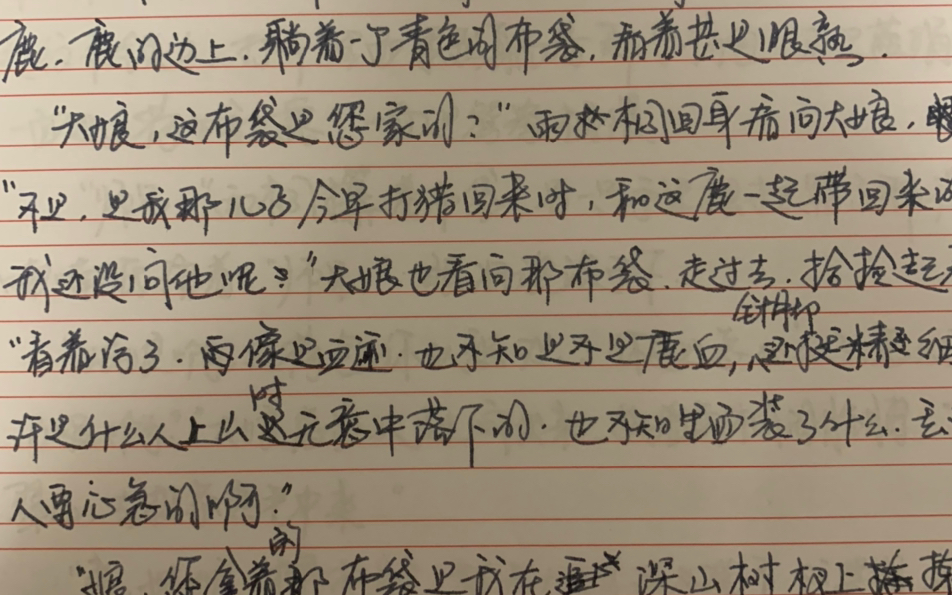 鹿。鹿的边上,躺着一个青色的布袋,看着甚是眼熟。
"大娘,这布袋是您家的?"雨秋桐回身看向大娘,
"不是,是我那儿子今早打猎回来时,和这鹿一起带回来的
我还没问他呢?"大娘也看向那布袋,走过去,拾捡起
针脚却
"看着污了,而像是血迹,也不知是不是鹿血,还挺精细
时
许是什么人上山是无意中落下的,也不知里面装了什么,丢
人要心急的啊。"
的
"娘,您拿着那布袋是我在深山树杈上